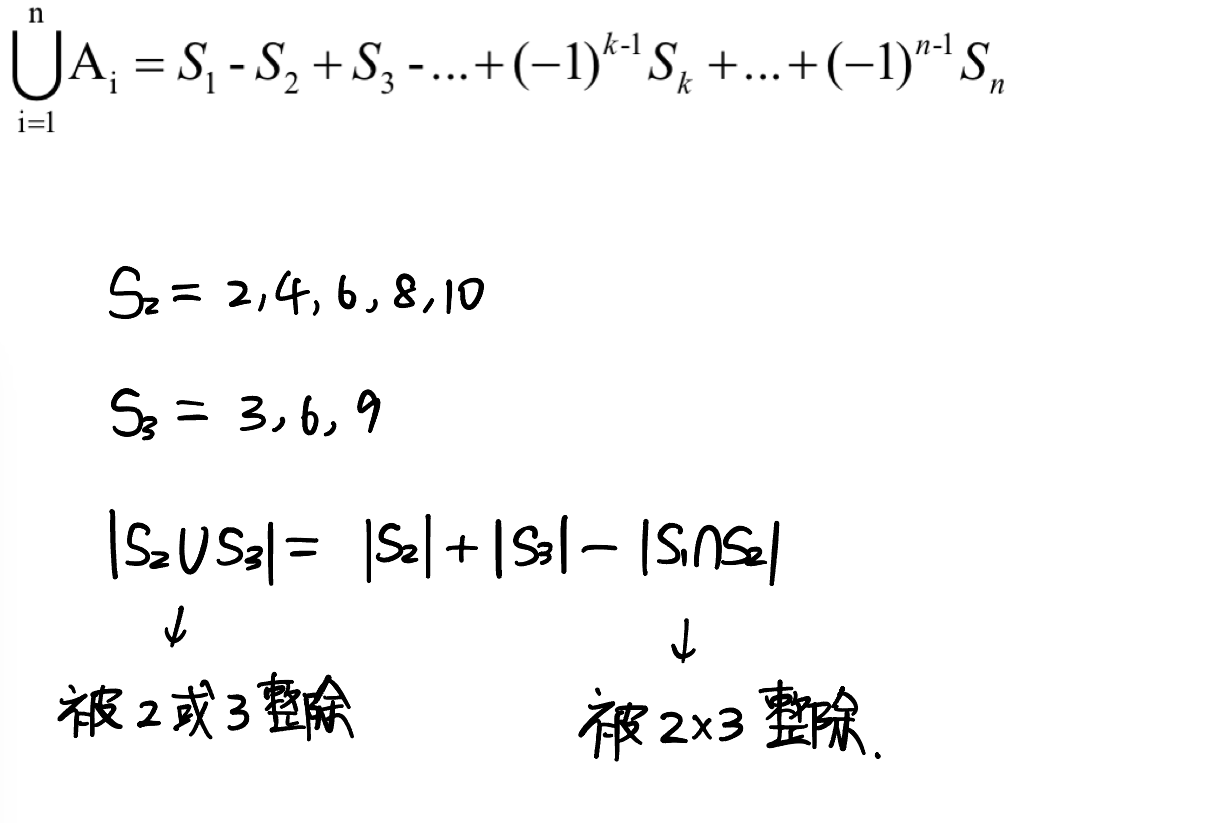 n
⋃Aᵢ = S₁ - S₂ + S₃ - ... + (−1)ᵏ⁻¹ Sₖ + ... + (−1)ⁿ⁻¹ Sₙ
i=1
S₂ = 2, 4, 6, 8, 10
S₃ = 3, 6, 9
|S₂∪S₃| = |S₂| + |S₃| − |S₁∩S₂|
↓ ↓
被2或3整除 被2×3整除.